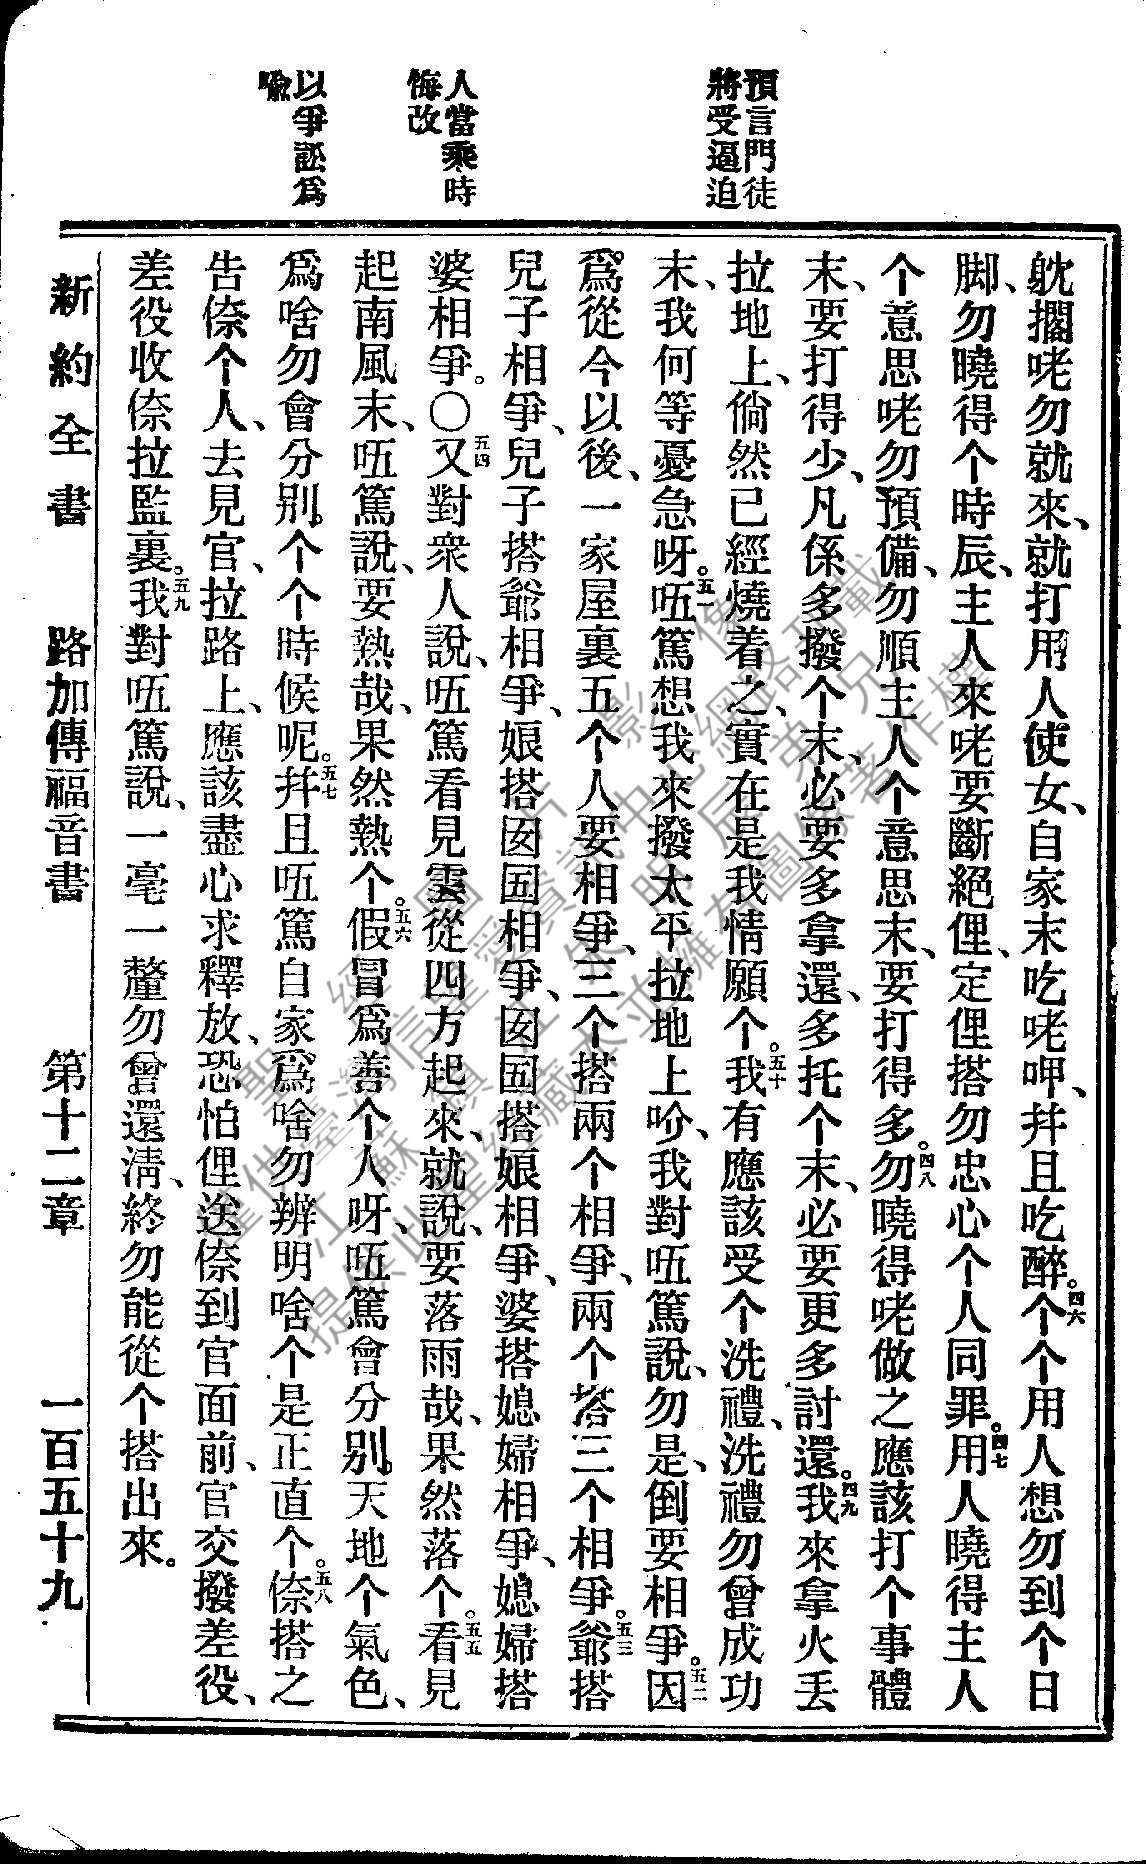 預言門徒
將受逼迫
人當乘時
悔改
以爭訟爲
喩
躭擱咾勿就來、就打用人使女、自家末吃咾呷、幷且吃醉。四六个个用人想勿到个日
脚、勿曉得个時辰、主人來咾要斷絕俚、定俚搭勿忠心个人同罪。四七用人曉得主人
个意思咾勿預備、勿順主人个意思末、要打得多。四八勿曉得咾做之應該打个事體
末、要打得少、凡係多撥个末、必要多拿還、多托个末、必要更多討還。四九我來拿火丟
拉地上、倘然已經燒着之、實在是我情願个。五十我有應該受个洗禮、洗禮勿曾成功
末、我何等憂急呀。五一㕶篤想我來撥太平拉地上吤、我對㕶篤說、勿是、倒要相爭。五二因
爲從今以後、一家屋裏五个人要相爭、三个搭兩个相爭、兩个搭三个相爭。五三爺搭
兒子相爭、兒子搭爺相爭、娘搭囡囝相爭、囡囝搭娘相爭、婆搭媳婦相爭、媳婦搭
婆相爭。〇五四又對衆人說、㕶篤看見雲從四方起來、就說、要落雨哉、果然落个。五五看見
起南風末、㕶篤說、要熱哉、果然熱个。五六假冒爲善个人呀、㕶篤會分別天地个氣色、
爲啥勿會分別个个時候呢。五七幷且㕶篤自家爲啥勿辨明啥个是正直个。五八倷搭之
告倷个人、去見官、拉路上、應該盡心求釋放、恐怕俚送倷到官面前、官交撥差役、
差役收倷拉監裏。五九我對㕶篤說、一毫一釐勿曾還淸、終勿能從个搭出來。
新約全書 路加傳福音書 第十二章 一百五十九